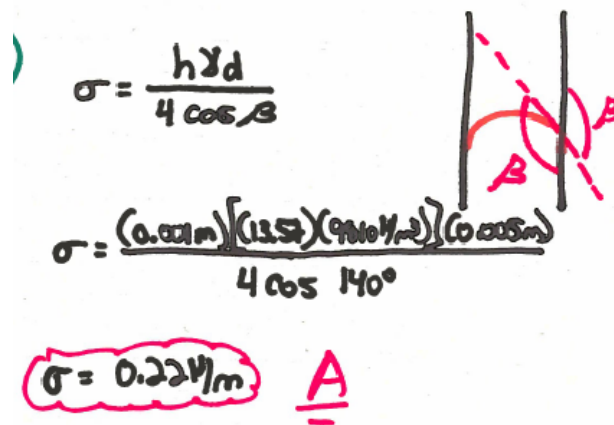 σ = hγd / 4 cos β
β
β
σ = (0.001m)[(13.57)(9810 N/m³)](0.005m) / 4 cos 140°
σ = 0.22 N/m A